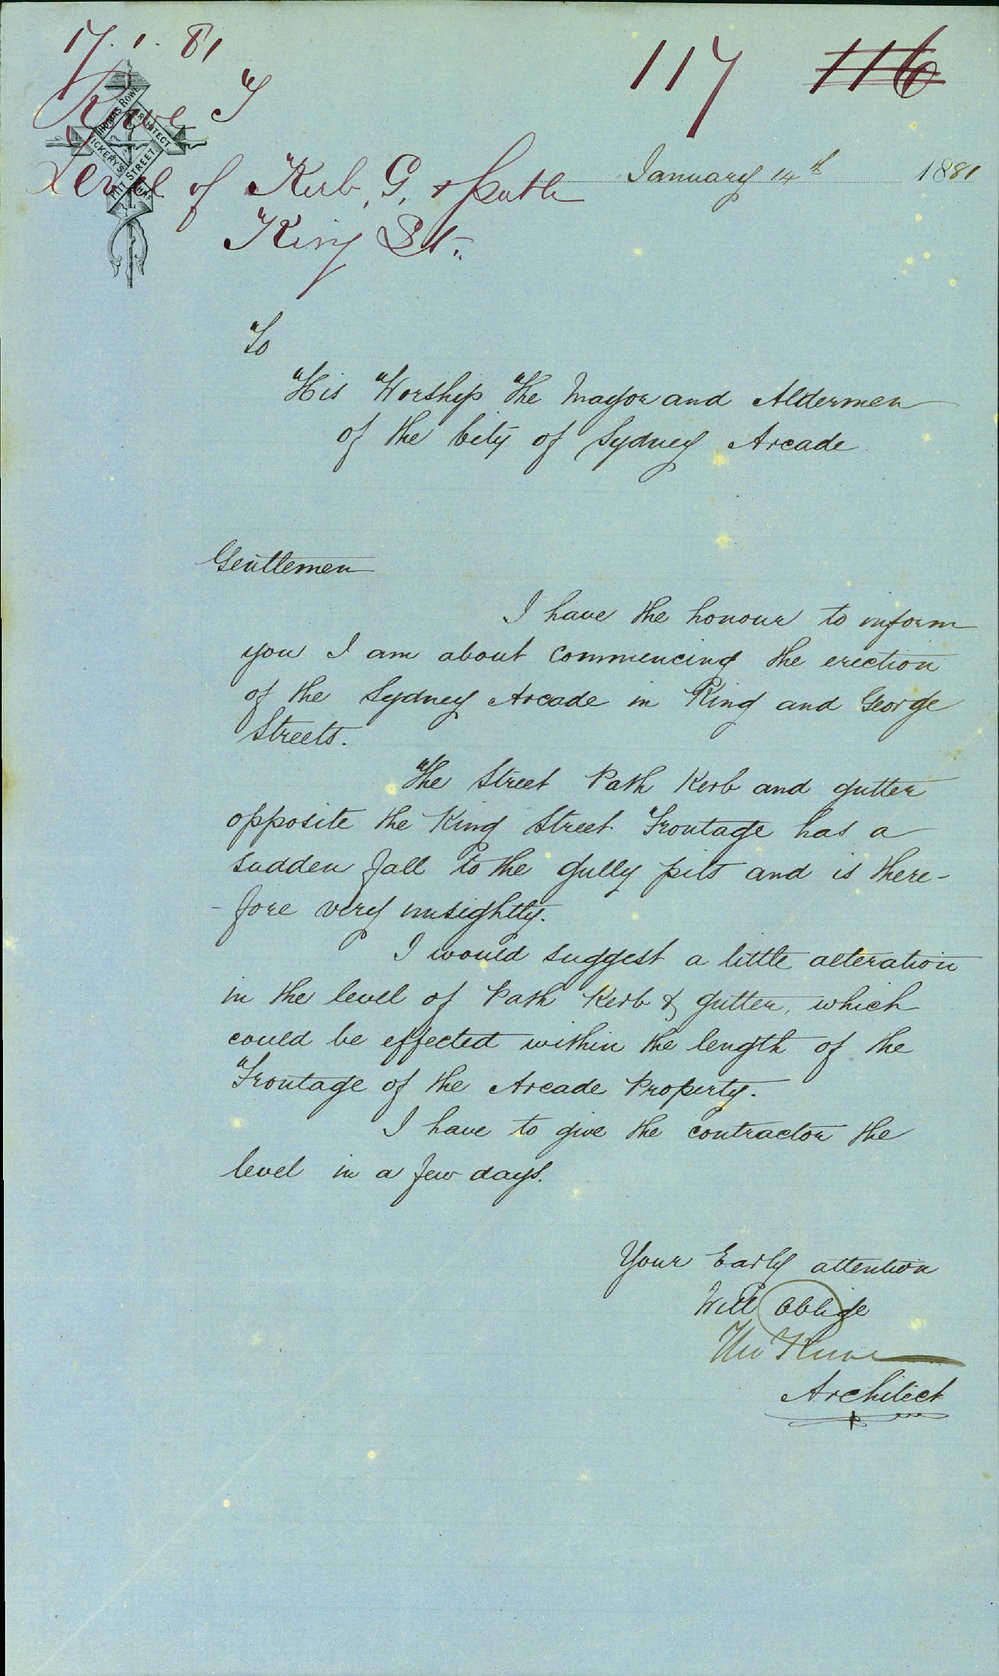 17. 1. 81
117 116
Rowe T
THOMAS ROWE
ARCHITECT
VICKERY'S
PITT STREET
Level of Kerb, G, & path
January 14th 1881
King St.
To
His Worship The Mayor and Aldermen
of the City of Sydney Arcade
Gentlemen
I have the honour to inform
you I am about commencing the erection
of the Sydney Arcade in King and George
Streets.
The Street Path Kerb and gutter
opposite the King Street Frontage has a
sudden fall to the gully pits and is there-
-fore very unsightly.
I would suggest a little alteration
in the level of Path Kerb & gutter, which
could be effected within the length of the
Frontage of the Arcade Property.
I have to give the contractor the
level in a few days.
Your Early attention
Will Oblige
Tho Rowe
Architect